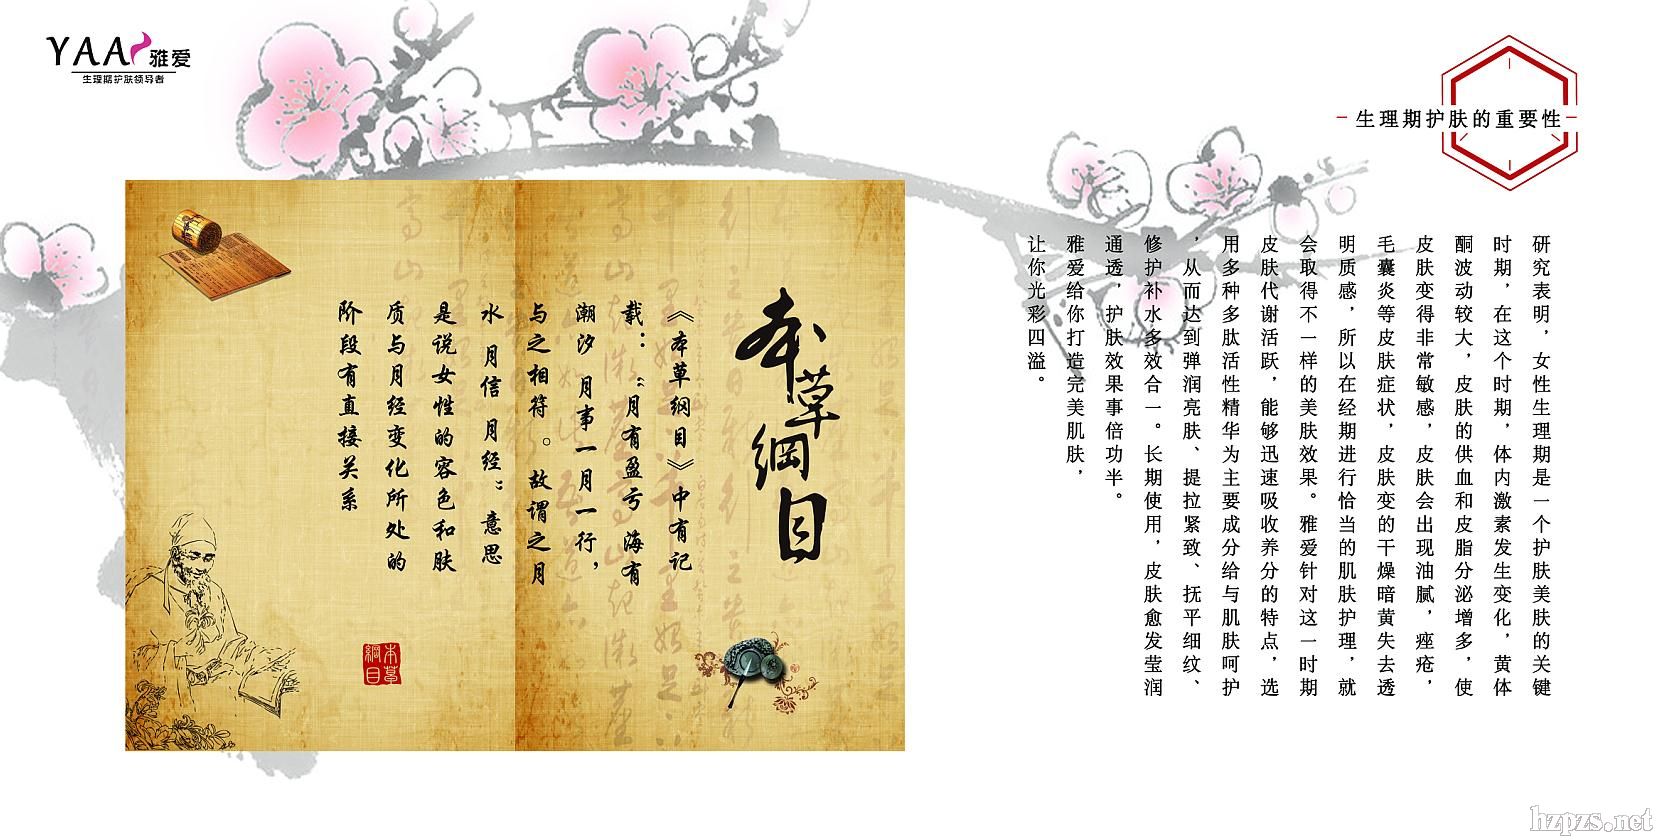 YAA
雅爱
生理期护肤领导者
生理期护肤的重要性
研究表明，女性生理期是一个护肤美肤的关键
时期，在这个时期，体内激素发生变化，黄体
酮波动较大，皮肤的供血和皮脂分泌增多，使
皮肤变得非常敏感，皮肤会出现油腻，痤疮，
毛囊炎等皮肤症状，皮肤变的干燥暗黄失去透
明质感，所以在经期进行恰当的肌肤护理，就
会取得不一样的美肤效果。雅爱针对这一时期
皮肤代谢活跃，能够迅速吸收养分的特点，选
用多种多肽活性精华为主要成分给与肌肤呵护
，从而达到弹润亮肤、提拉紧致、抚平细纹、
修护补水多效合一。长期使用，皮肤愈发莹润
通透，护肤效果事倍功半。
雅爱给你打造完美肌肤，
让你光彩四溢。
本草綱目
《本草纲目》中有记
载：“月有盈亏 海有
潮汐 月事一月一行，
与之相符。故谓之月
水 月信 月经”意思
是说女性的容色和肤
质与月经变化所处的
阶段有直接关系
本草
綱目
hzpzs.net